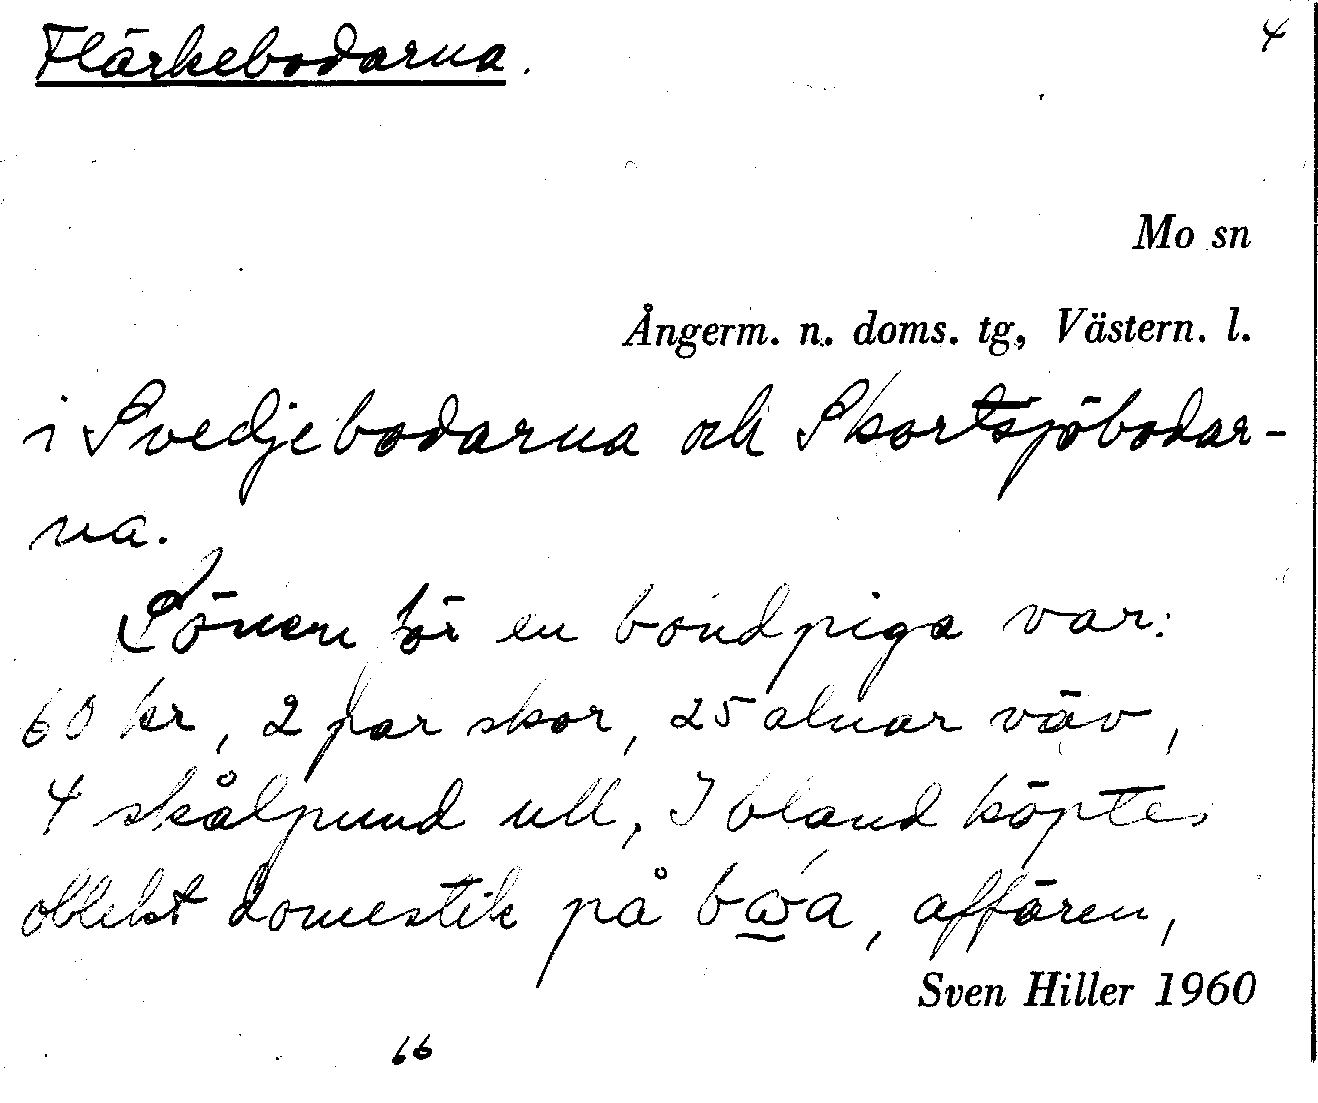 Flärkebodarna.
4
Mo sn
Ångerm. n. doms. tg, Västern. l.
i Svedjebodarna och Skortsjöbodar-
na.
Lönen för en bondpiga var:
60 kr, 2 par skor, 25 alnar väv,
4 skålpund ull, Ibland köptes
oblekt domestik på
, affären,
Sven Hiller 1960
66